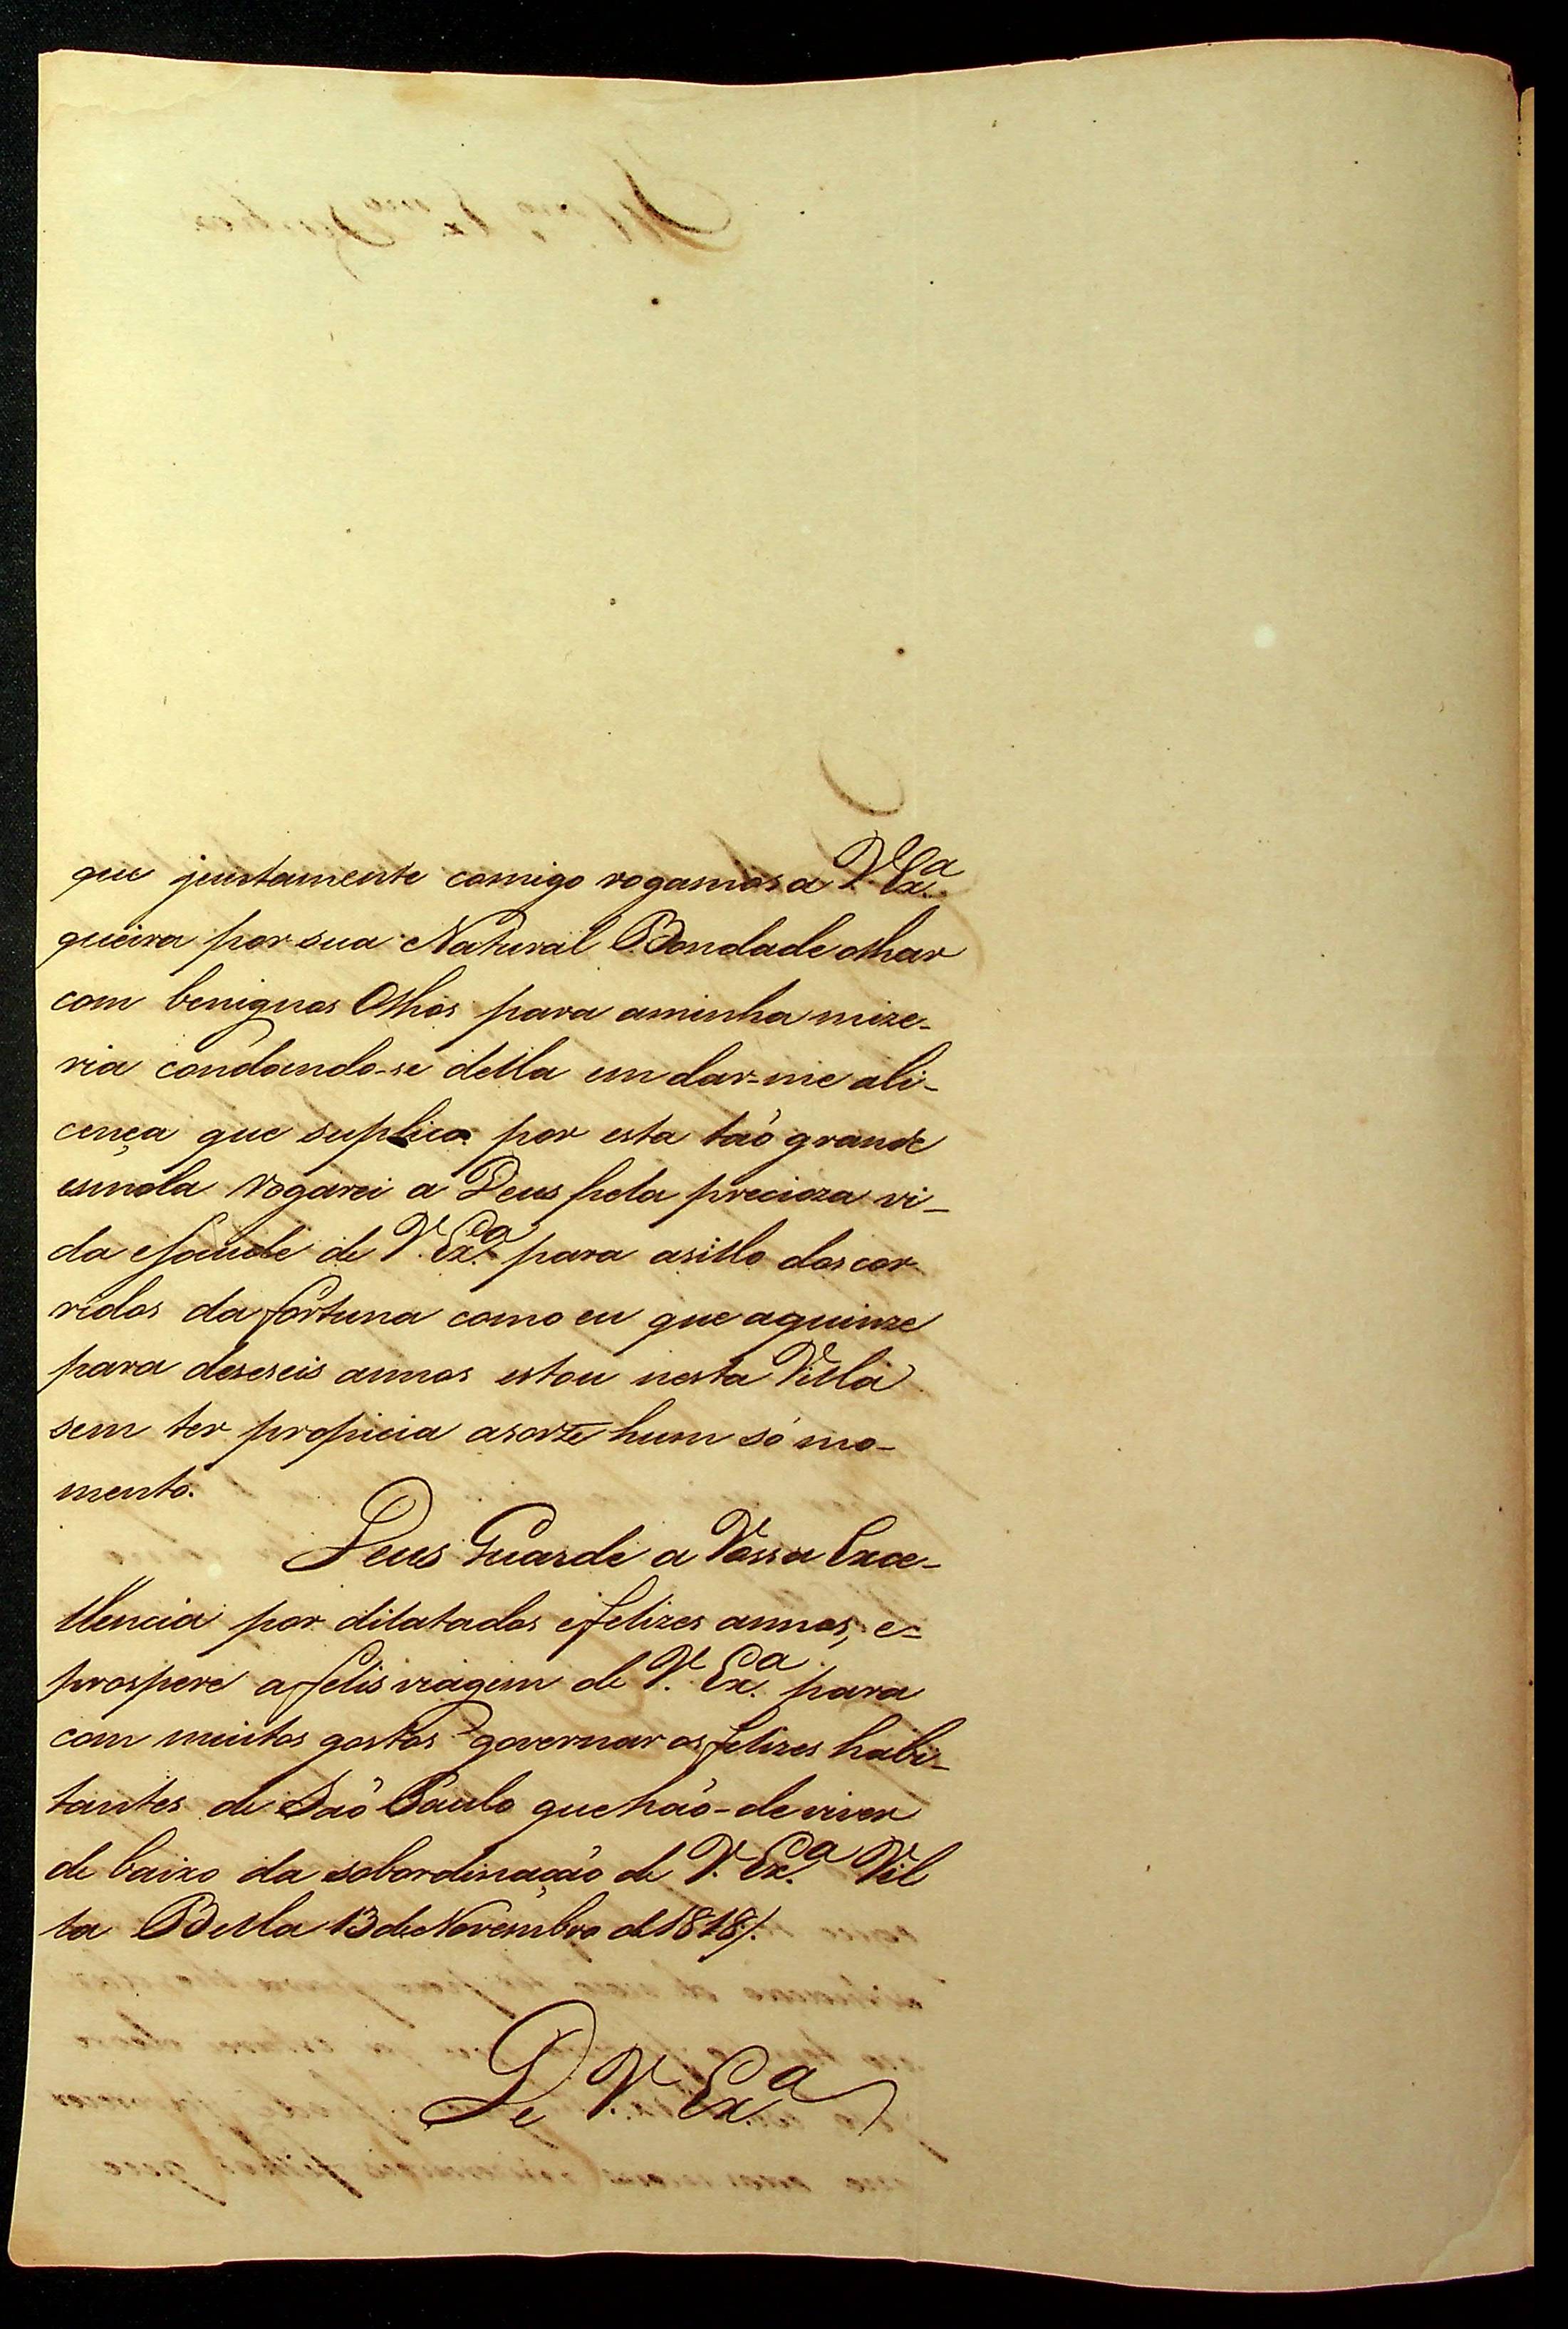 que juntamente comigo rogamos a V. Ex.ª
queira por sua Natural Bondade olhar
com benignos Olhos para aminha mize-
ria condoando-se della em dar-me ali-
cença que suplico por esta taõ grande
esmola rogarei a Deus pela precioza vi-
da esaude de V. Ex.ª para asillo dos cor
ridos da fortuna como eu que aquinze
para deseseis annos estou nesta Villa
sem ter propicia asorte hum só mo-
mento.
Deus Guarde a Vossa Exce-
llencia por dilatados efelizes annos, e=
prospere afelis viagem de V. Ex.ª para
com muitos gostos governar os felizes habi-
tantes de Saõ Paulo que haõ-de viver
de baixo da sobordinaçaõ de V. Ex.ª Vil
la Bella 13 de Novembro d 1818/.
De V. Ex.ª